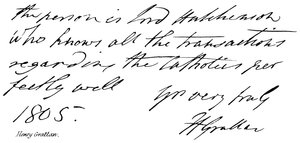 the person is Lord Hutchinson
who knows all the transactions
regarding the Catholics per
fectly well
yrs very truly
1805.
HGrattan
Henry Grattan.